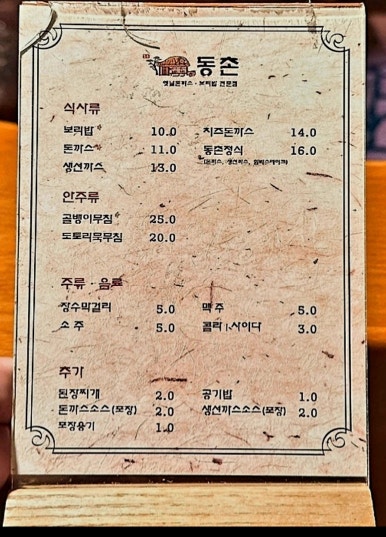 동촌
옛날돈까스 · 보리밥 전문점
식사류
보리밥* 10.0 치즈돈까스 14.0
돈까스* 11.0 동촌정식 16.0
생선까스 13.0 (돈까스, 생선까스, 함박스테이크)
안주류
골뱅이무침* 25.0
도토리묵무침 20.0
주류 · 음료
장수막걸리 5.0 맥주 5.0
소주 5.0 콜라 | 사이다 3.0
추가
된장찌개 2.0 공기밥 1.0
돈까스소스(포장) 2.0 생선까스소스(포장) 2.0
포장용기 1.0